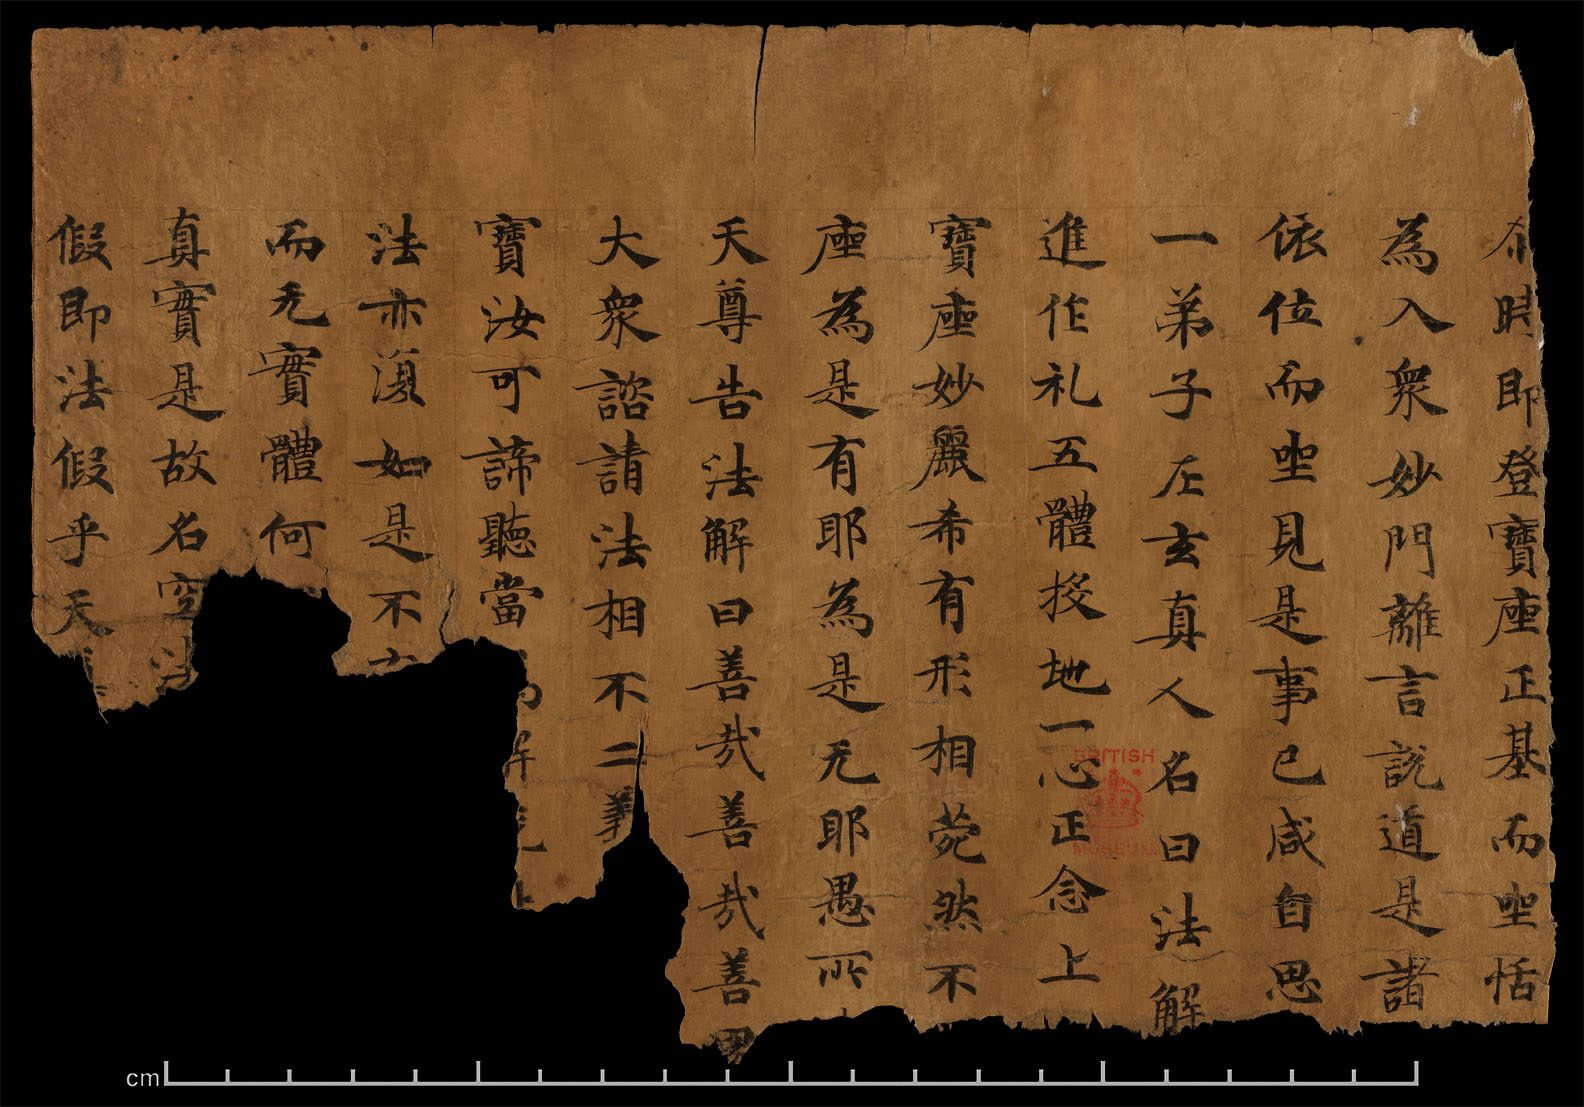 尒時即登寶座正基而坐恬
為入衆妙門離言說道是諸
依位而坐見是事已咸自思
一弟子左玄真人名曰法解
進作礼五體投地一心正念上
寶座妙麗希有形相菀然不
座為是有耶為是无耶愚所
天尊告法解曰善哉善哉善男
大衆諮請法相不二義
寶汝可諦聽當為解說
法亦澓如是不
而无實體何
真實是故名空法
假即法假假乎天
BRITISH MUSEUM
cm